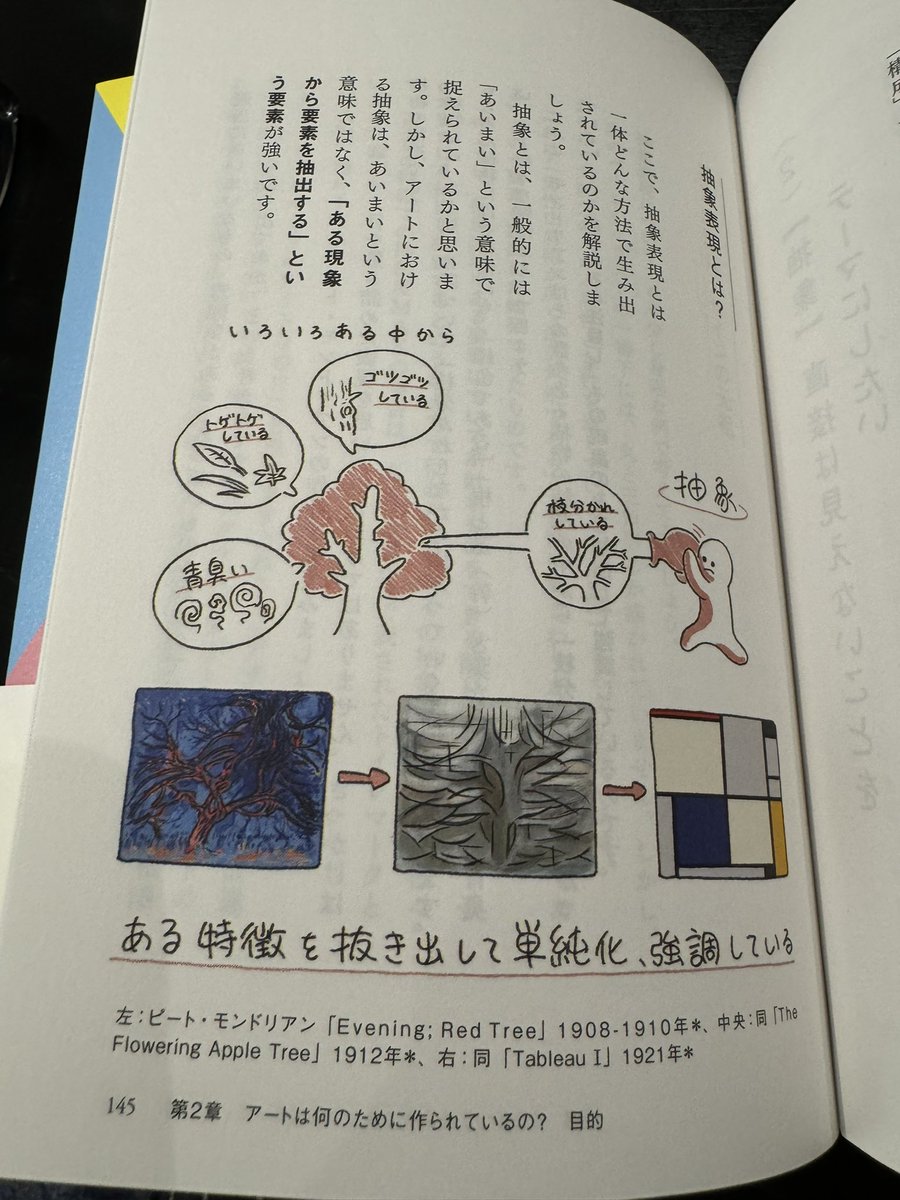 抽象表現とは？
ここで、抽象表現とは
一体どんな方法で生み出
されているのかを解説しま
しょう。
抽象とは、一般的には
「あいまい」という意味で
捉えられているかと思いま
す。しかし、アートにおけ
る抽象は、あいまいという
意味ではなく、「ある現象
から要素を抽出する」とい
う要素が強いです。
いろいろある中から
ゴツゴツ
している
トゲトゲ
している
青臭い
枝分かれ
している
抽象
ある特徴を抜き出して単純化、強調している
左：ピート・モンドリアン「Evening; Red Tree」1908-1910年*、中央：同「The
Flowering Apple Tree」1912年*、右：同「Tableau I」1921年*
145 第2章 アートは何のために作られているの？ 目的